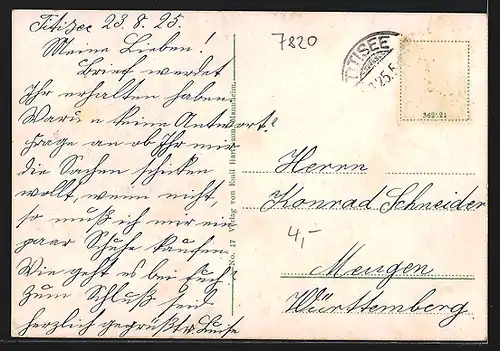 Titisee 23.8.25.
Meine Lieben!
Brief werdet
Ihr erhalten haben
Warum keine Antwort?
frage an ob Ihr mir
die Sachen schicken
wollt, wenn nicht,
so muß ich mir ein
paar Schuhe kaufen.
Wie geht es bei Euch?
Zum Schluß seid
herzlich gegrüßt v. Luise
No. 17 Verlag von Emil Hartmann, Mannheim.
7820
TITISEE
362521
Herrn
Konrad Schneider
4,-
Mengen
Württemberg.